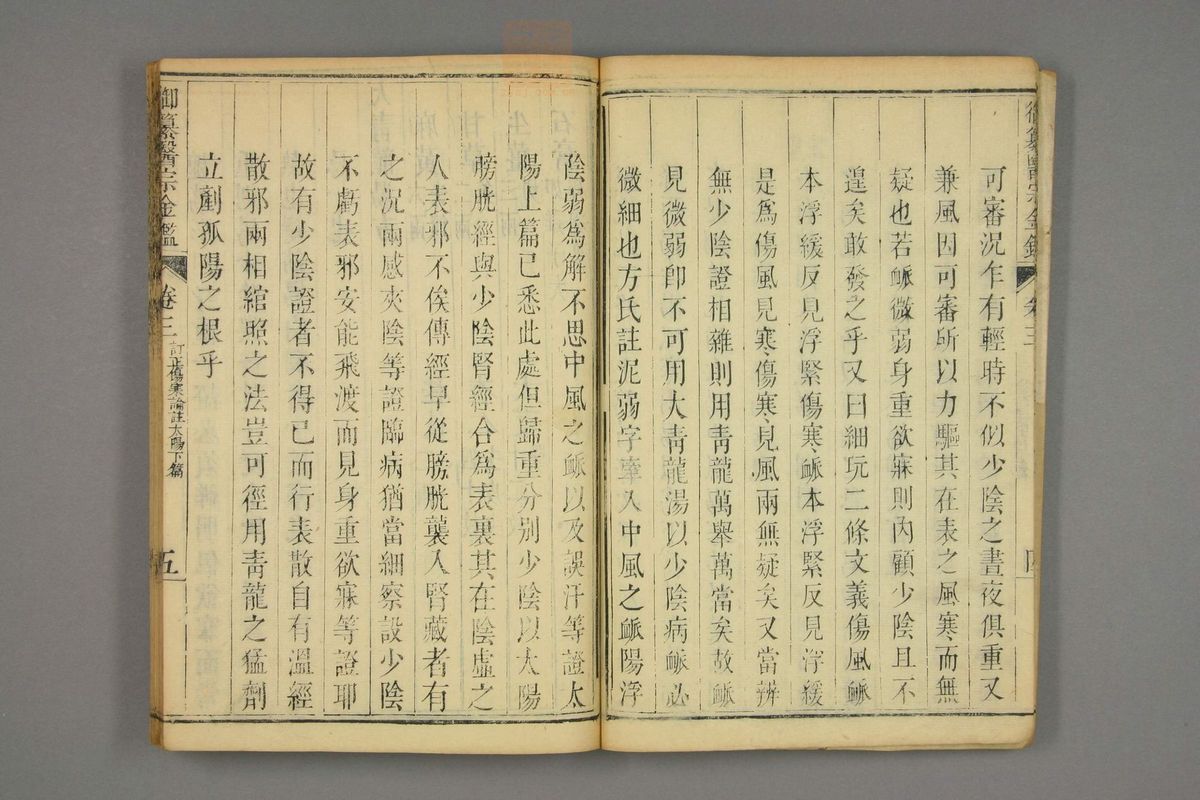 御纂醫宗金鑑 卷三 四
可審況乍有輕時不似少陰之晝夜俱重又
兼風因可審所以力驅其在表之風寒而無
疑也若脈微弱身重欲寐則內顧少陰且不
遑矣敢發之乎又曰細玩二條文義傷風脈
本浮緩反見浮緊傷寒脈本浮緊反見浮緩
是爲傷風見寒傷寒見風兩無疑矣又當辨
無少陰證相雜則用靑龍萬舉萬當矣故脈
見微弱卽不可用大靑龍湯以少陰病脈必
微細也方氏註泥弱字牽入中風之脈陽浮
陰弱爲解不思中風之脈以及誤汗等證太
陽上篇已悉此處但歸重分別少陰以太陽
膀胱經與少陰腎經合爲表裏其在陰虛之
人表邪不俟傳經早從膀胱襲入腎藏者有
之況兩感夾陰等證臨病猶當細察設少陰
不虧表邪安能飛渡而見身重欲寐等證耶
故有少陰證者不得已而行表散自有溫經
散邪兩相綰照之法豈可徑用靑龍之猛劑
立剷孤陽之根乎
御纂醫宗金鑑 卷三 訂正傷寒論註太陽下篇 五